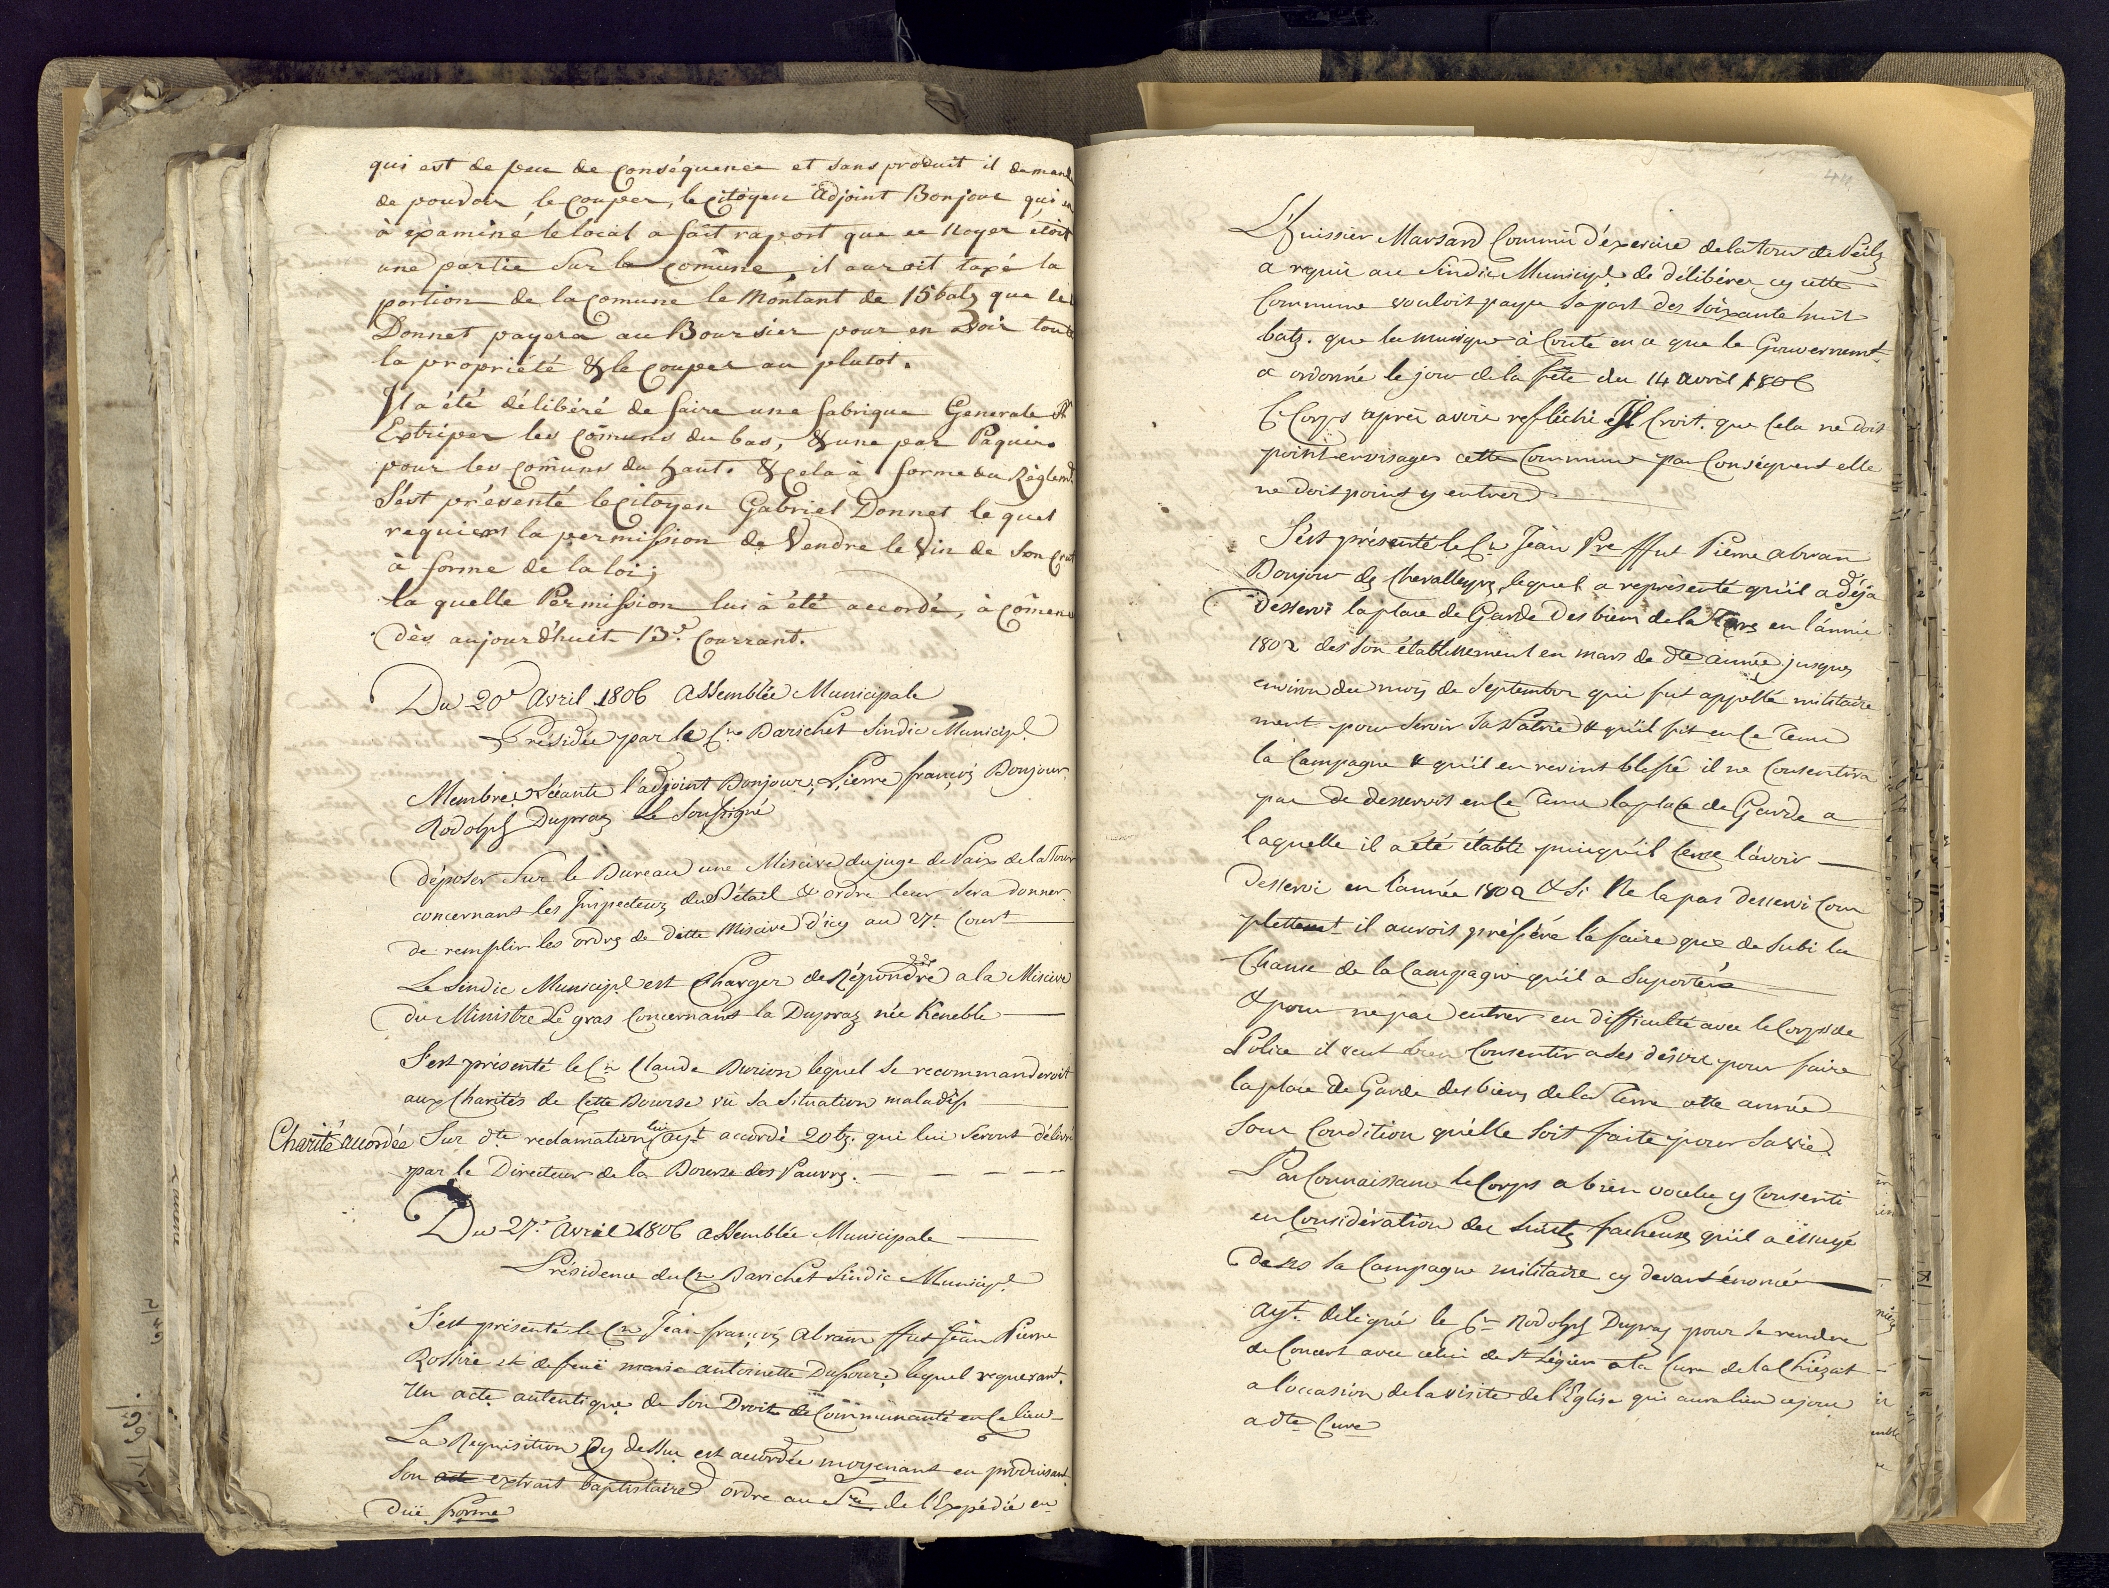 qui est de peu de conséquence et sans produit il demande
de pouvoir le couper, le citoyen Adjoint Bonjour qui en
à éxaminé le local a fait raport que ce Noyer étoit
une partie sur la comune, il auroit taxé la
portion de la comune le Montant de 15 batz que le
Donnet payera au Boursier pour en avoir toute
la propriété & le couper au plutot.
Il a été délibéré de faire une fabrique Generale pr
Extriper les comuns du bas, & une par Paquier
pour les comuns du haut. & cela à forme du Règlemt
S'est présenté le citoyen Gabriel Donnet le quel
requiert la permission de Vendre le Vin de son Crut
à forme de la loi;
la quelle Permission lui à été accordé, à comence
dès aujourd'huit 13e Courrant.
Du 20e Avril 1806 Assemblée Municipale
Présidée par le Cn Barichet Sindic Municipl
Membres Séants l'adjoint Bonjour, Pierre françois Bonjour
Rodolph Dupraz Le Soussigné
déposer Sur le Bureau une Miscive du juge de Paix de la Tour
concernant les Inspecteurs du Bétail & ordre leur sera donner
de remplir les ordres de ditte Miscive d'icy au 27e Court
Le Sindic Municipl est Charger de Répondre a la Miscive
du Ministre Le gras Concernant la Dupraz née Keneble
S'est présenté le Cn Claude Burion lequel se recommanderoit
aux Charités de Cette Bourse vû sa situation maladif
Charité accordée Sur dte reclamation lui ayt accordé 20 bz. qui lui seront délivré
par le Directeur de la Bourse des Pauvres.
Du 27e Avril 1806 Assemblée Municipale
Présidence du Cn Barichet Sindic Municipl
S'est présenté le Cn Jean françois Abram ffut Jean Pierre
Rossire et de feuë marie antoinette Dufour, lequel requerant
Un acte autentique de son Droit de Communauté en Ce lieu
La Requisition Cy dessus est accordée moyenant en produisant
son acte extrait baptistaire ordre au Sre de l'Expédié en
duë forme
44
L'Huissier Marsard Commis d'exercice de la Tour de Peilz
a requis au Sindic Municipl de délibérer cy cette
Commune vouloit payer sa part des Soixante huit
batz. que la musique à Couté en a que le Gouvernemt
a ordonné le jour de la fête du 14 avril 1806
Ce Corps aprés avoir refléchi Il Croit. que Cela ne doit
point envisager cette Commune par Conséquent elle
ne doit point y entrer
S'est présenté le Cn Jean Pre ffut Pierre abram
Bonjour de Chevalleyres, lequel a representé qu'il a déja
Desservi la place de Garde Des biens de la Terre en l'année
1802 des son établissement en mars de dte année jusques
environ du mois de Septembre qui fut appellé militaire
ment pour servir sa Patrie & qu'il fit en Ce Tems
la Campagne & qu'il en revint blessé il ne Consentira
pas de desservir en Ce Tems la place de Garde a
laquelle il a été établi puisqu'il Cense l'avoir
Desservi en l'année 1802 & Si Ne la pas desservi Com
plettemt il auroit préféré le faire que de Subi la
Chanse de la Campagne qu'il a Suportés
& pour ne pas entrer en difficulté avec le Corps de
Police il veut bien Consentir a ses désirs pour faire
la place de Garde des biens de la Terre cette année
sous Condition qu'elle soit faite pour sa vie
Par Connaissance le Corps a bien voulu y Consenti
en Considération des Suites facheuses qu'il a éssuyé
dans sa Campagne militaire cy devant énoncée
ayt. deligué le Cn Rodolph Dupraz pour se rendre
de Concert avec celui de St Légier a la Cure de la Chiézaz
a l'occasion de la visite de l'Eglise qui aura lieu ce jour
a dte Cure